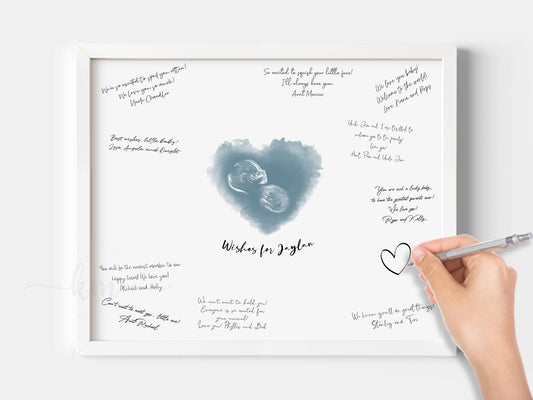 We're so excited to spoil you rotten!
We love you so much!
Uncle Chandler
So excited to squish your little face!
I'll always love you.
Aunt Monica
We love you baby!
Welcome to the world.
Love, Nana and Pops
Best wishes, little baby!
Love, Angela and Dwight
Uncle Jim and I are thrilled to
welcome you to the family!
Love you
Aunt Pam and Uncle Jim
You are such a lucky baby,
to have the greatest parents ever!
We love you!
Ryan and Kelly
Wishes for Jaylan
You will be the newest member to our
happy team! We love you!
Michael and Holly
Can't wait to meet you, little one!
Aunt Rachel
We can't wait to hold you!
Everyone is so excited for
your arrival!
Love you! Phyllis and Bob
We know you'll do great things!
Stanley and Teri